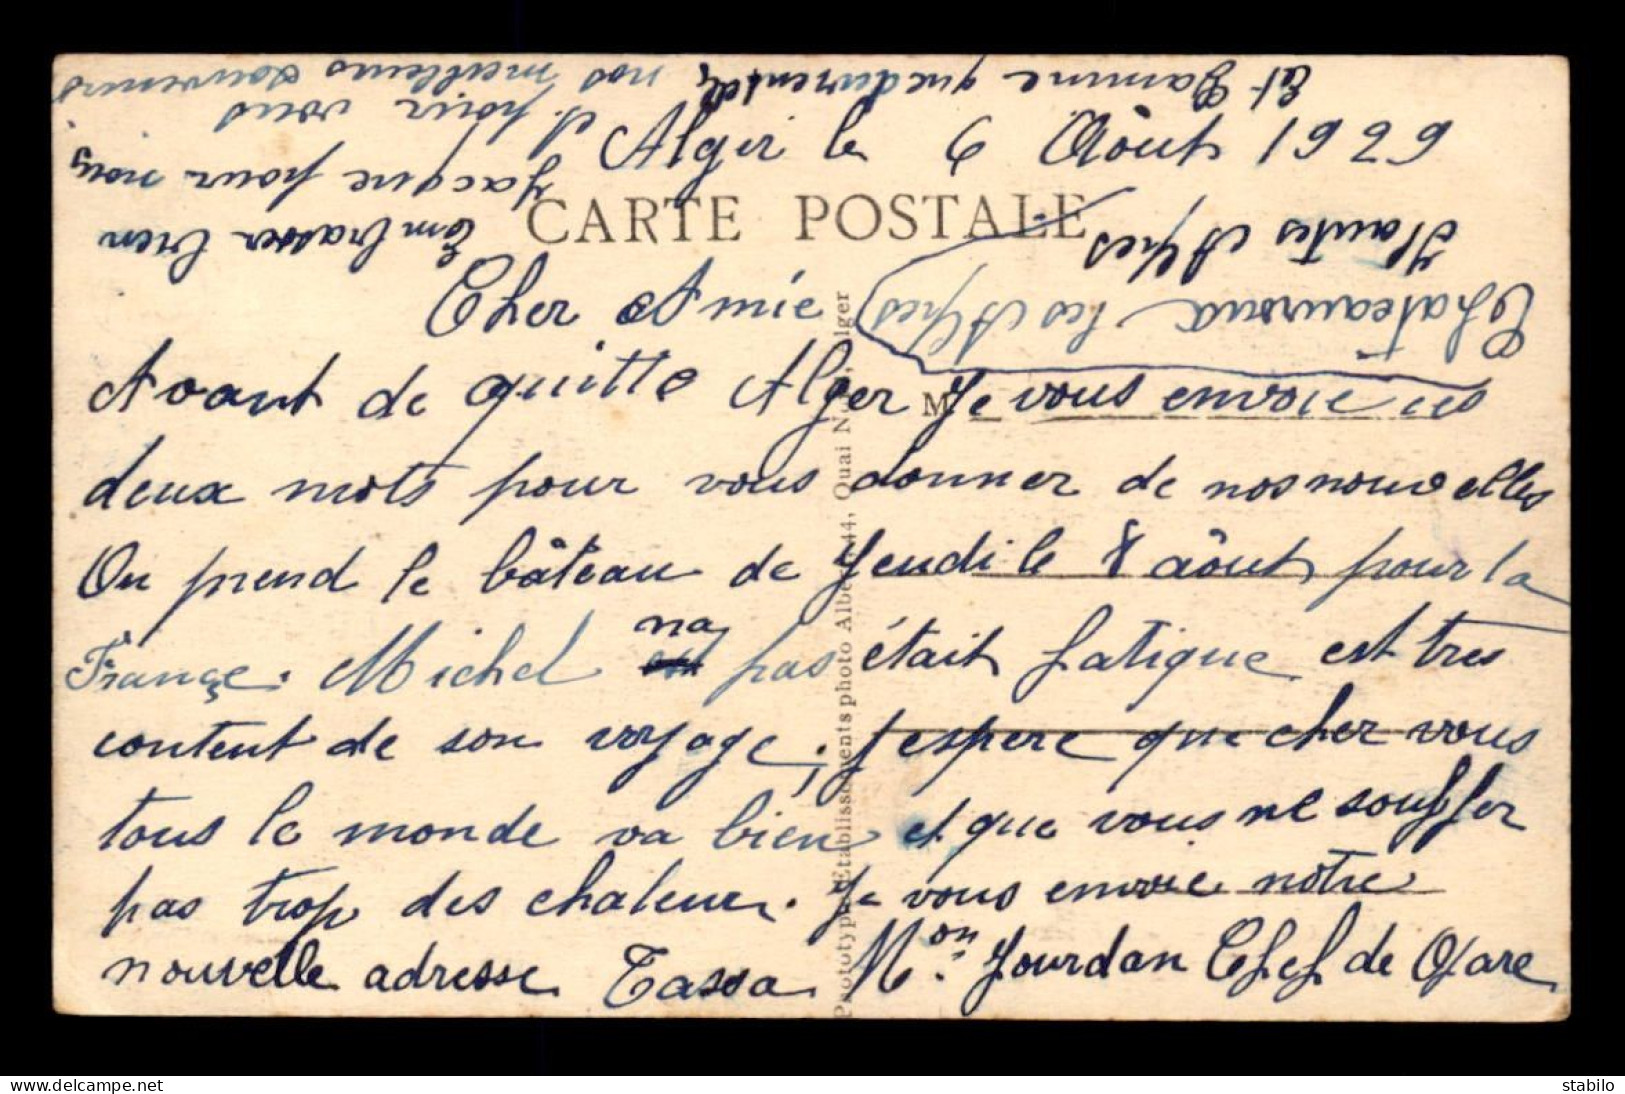 Alger le 6 Août 1929
CARTE POSTALE
Cher Amie
Avant de quitte Alger Je vous envoie ces
deux mots pour vous donner de nos nouvelles
On prend le bâteau de Jeudi le 8 août pour la
Françe. Michel na pas était fatigue est tres
content de son voyage; J'espere que cher vous
tous le monde va bien et que vous ne souffer
pas trop des chaleur. Je vous envoie notre
nouvelle adresse Tassa Mon: Jourdan Chef de Gare
Chateauroux les Alpes
Hautes Alpes
Embrasser bien
Jacque pour nous
et pour vous
nos meilleurs souvenirs
M
Phototypie Etablissements photo Albert, 44, Quai Nord, Alger
delcampe.net
stabilo